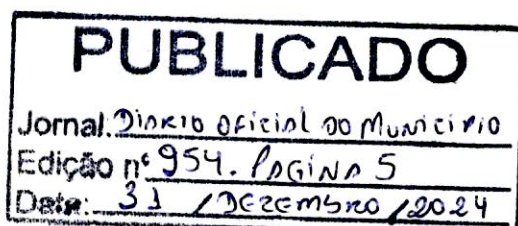 PUBLICADO
Jornal: DIARIO OFICIAL DO MUNICIPIO
Edição nº 954. PAGINA 5
Data: 31 / DEZEMBRO / 2024